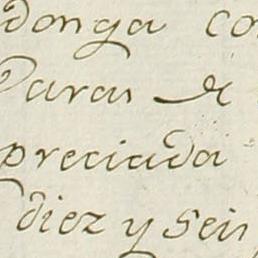 donga co
Varas de
preciada
diez y Seis